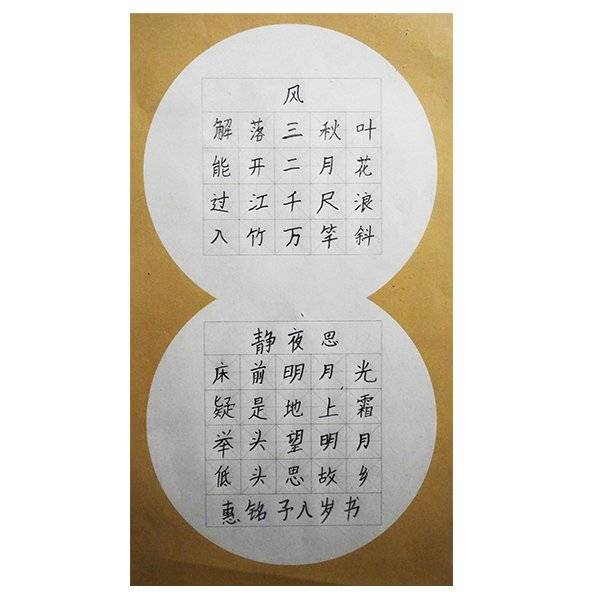 风
解落三秋叶
能开二月花
过江千尺浪
入竹万竿斜
静夜思
床前明月光
疑是地上霜
举头望明月
低头思故乡
惠铭子八岁书